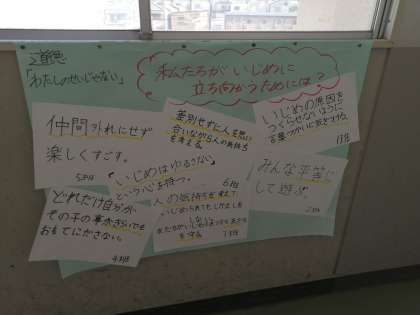 道徳
「わたしのせいじゃない」
私たちがいじめに
立ち向かうためには?
仲間外れにせず
楽しくすごす。
5班
差別せずに人を思い
合いながら人の気持ち
を考える。
いじめの原因を
つくらせないように
言葉づかいに気をつける。
1班
「いじめはゆるさない」
という心を持つ。
6班
みんな平等に
して遊ぶ。
2班
どれだけ自分が
その子の事がきらいでも
おもてにださない。
4班
人の気持ちを考えて
いじめられても